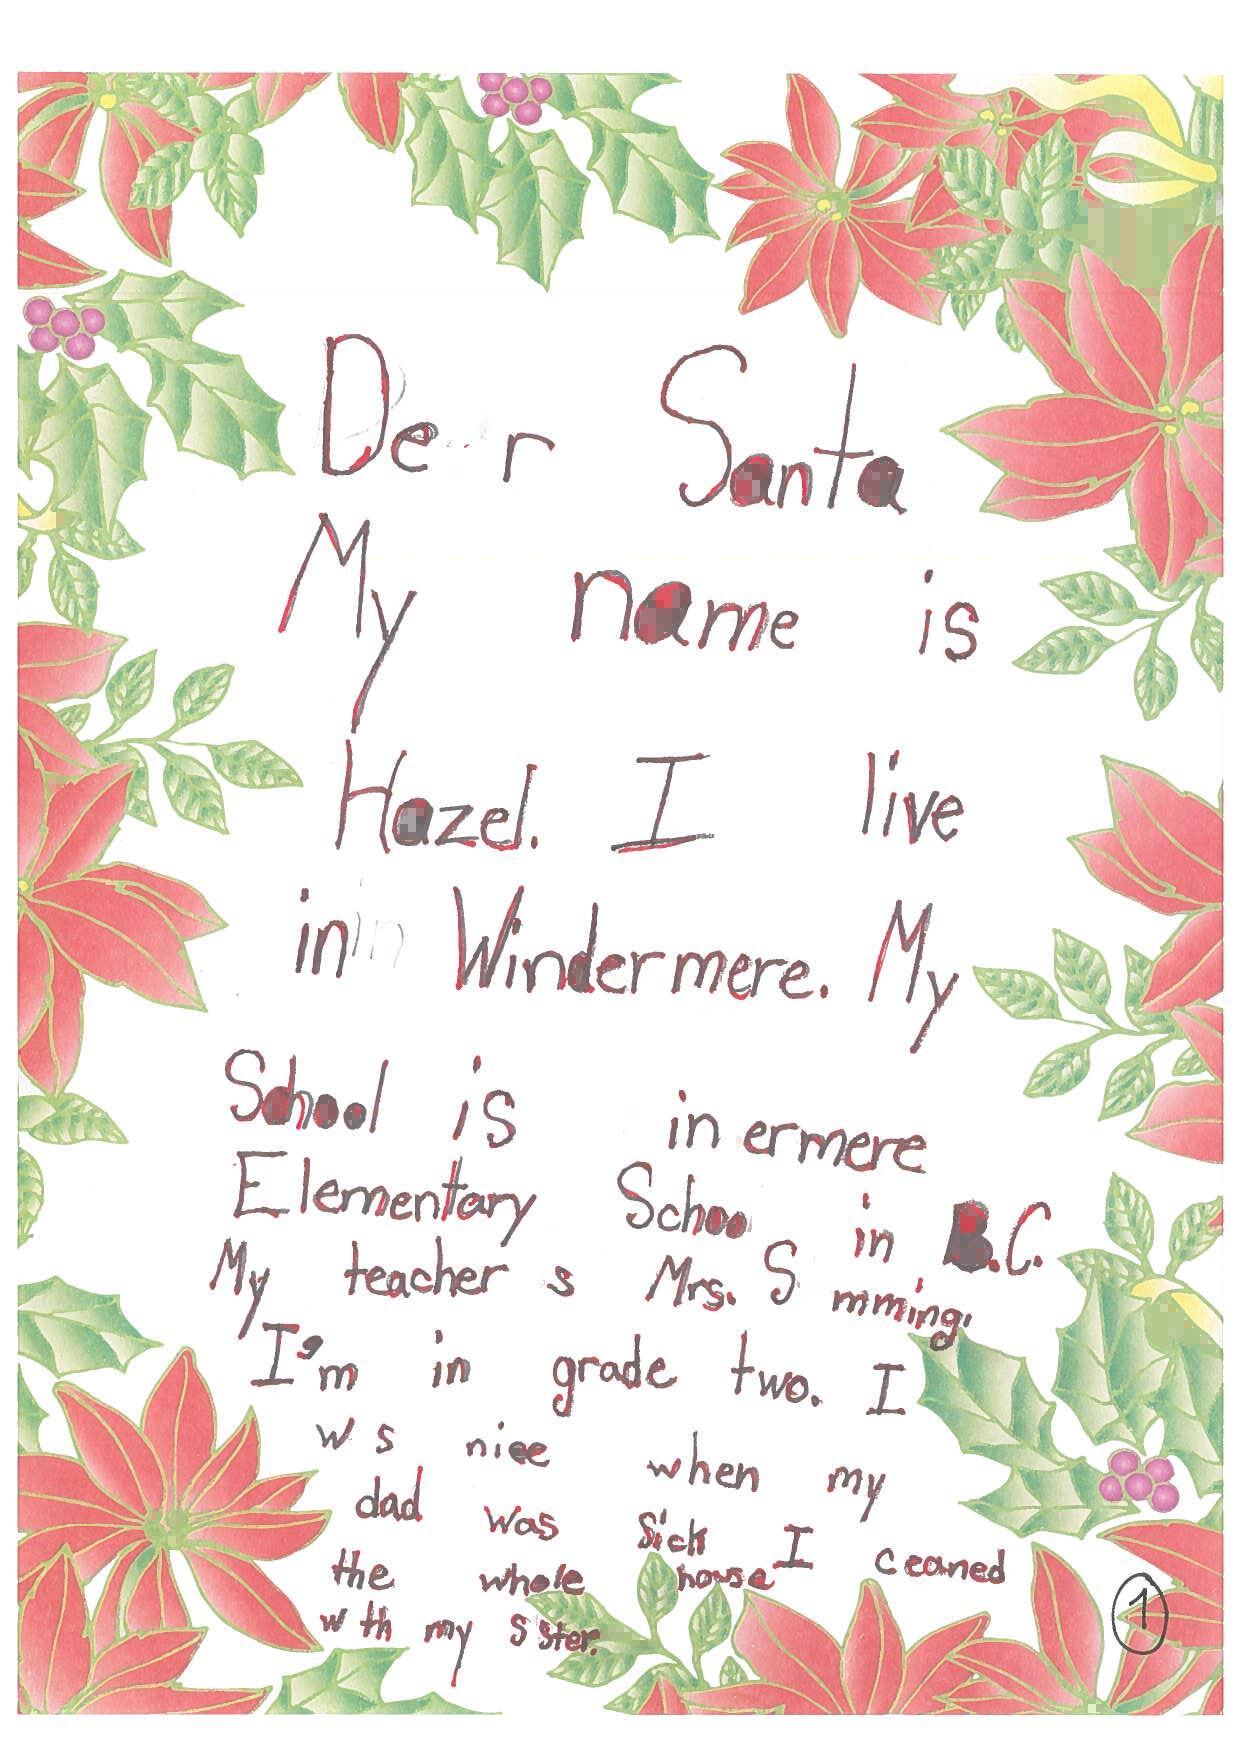 Dear Santa
My name is
Hazel. I live
in Windermere. My
School is in ermere
Elementary Schoo in B.C.
My teacher s Mrs. S mming.
I'm in grade two. I
w s nice when my
dad was Sick I ceaned
the whole house
w th my s ster.
1